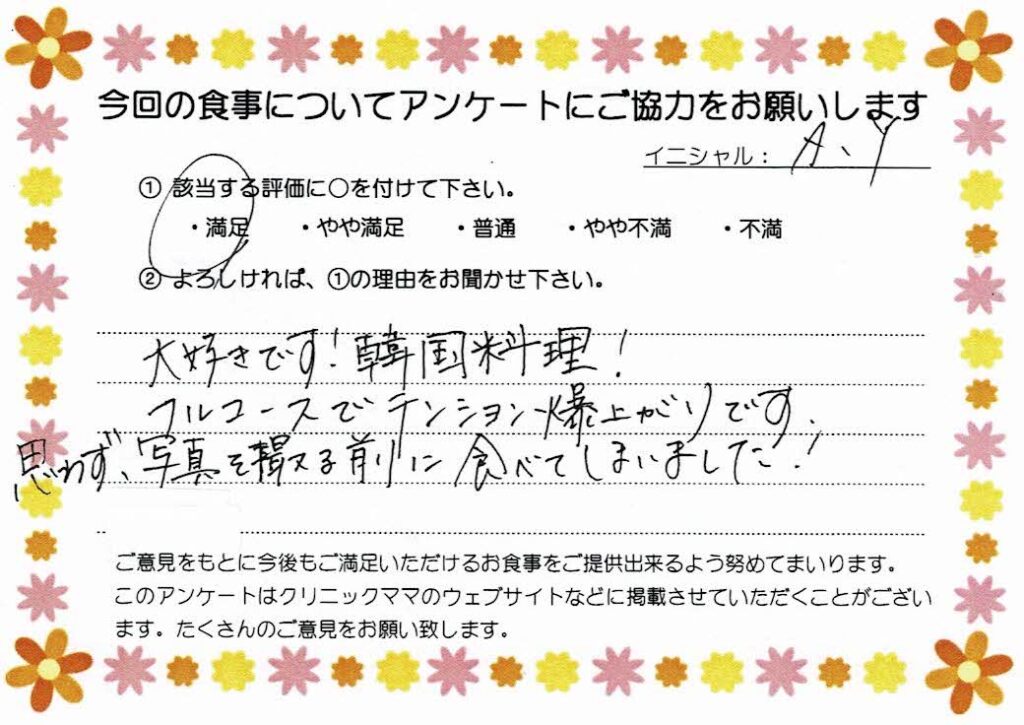 今回の食事についてアンケートにご協力をお願いします
イニシャル: A、Y
① 該当する評価に○を付けて下さい。
・満足 ・やや満足 ・普通 ・やや不満 ・不満
② よろしければ、①の理由をお聞かせ下さい。
大好きです!韓国料理!
フルコースでテンション爆上がりです。
思わず、写真を撮る前に食べてしまいました!
ご意見をもとに今後もご満足いただけるお食事をご提供出来るよう努めてまいります。
このアンケートはクリニックママのウェブサイトなどに掲載させていただくことがござい
ます。たくさんのご意見をお願い致します。